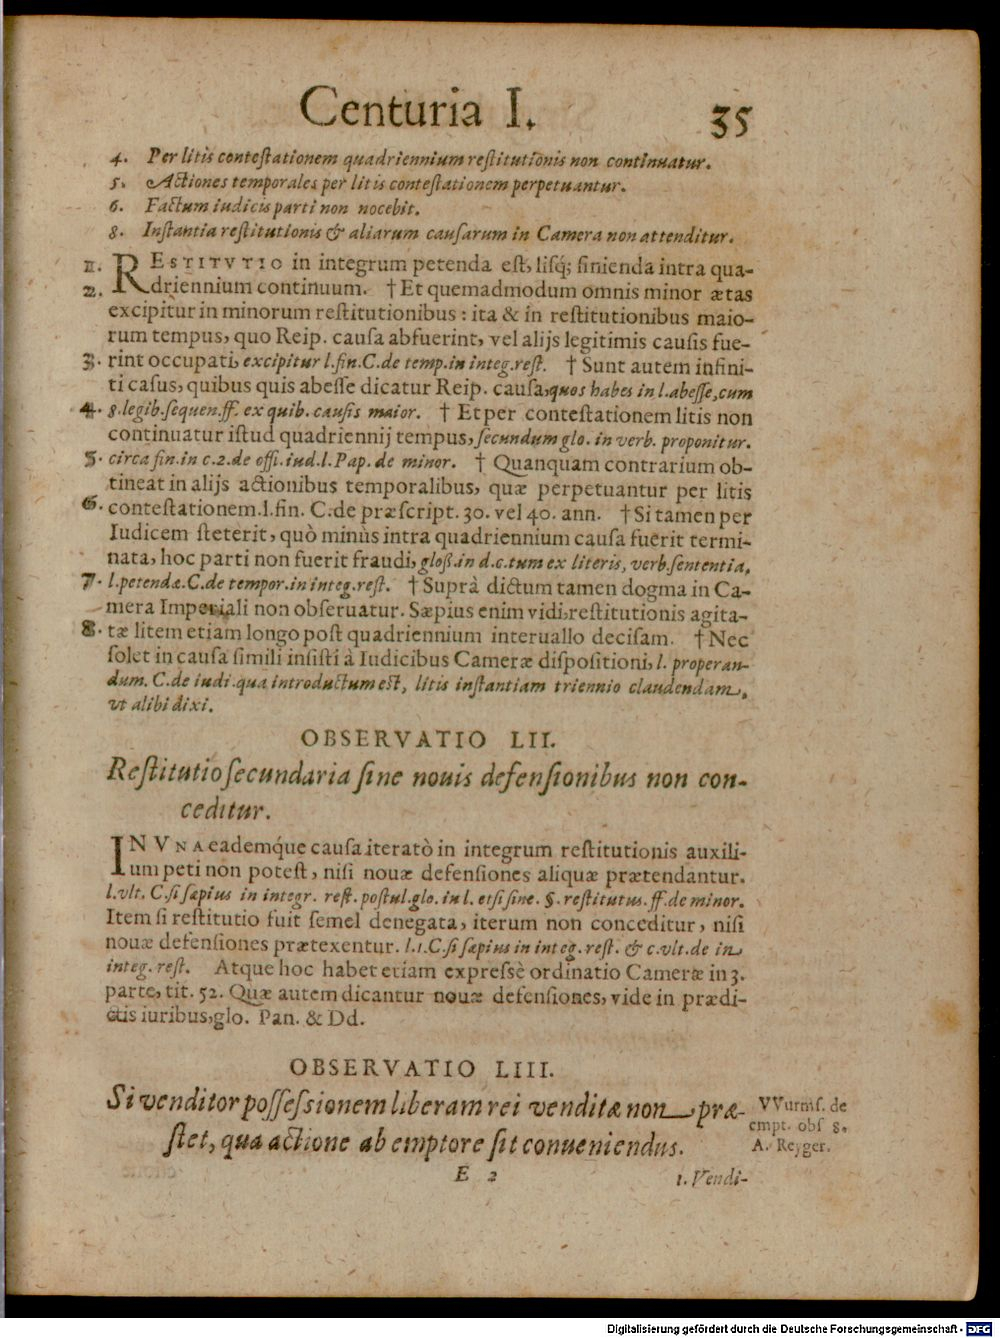 Centuria I. 35
4. Per litis contestationem quadriennium restitutionis non continuatur.
5. Actiones temporales per litis contestationem perpetuantur.
6. Factum iudicis parti non nocebit.
8. Instantia restitutionis & aliarum causarum in Camera non attenditur.
1. RESTITVTIO in integrum petenda est, lisq́; finienda intra qua-
2. driennium continuum. † Et quemadmodum omnis minor ætas
excipitur in minorum restitutionibus: ita & in restitutionibus maio-
rum tempus, quo Reip. causa abfuerint, vel alijs legitimis causis fue-
3. rint occupati, excipitur l. fin. C. de temp. in integ. rest. † Sunt autem infini-
ti casus, quibus quis abesse dicatur Reip. causa, quos habes in l. abesse, cum
4. 8. legib. sequen. ff. ex quib. causis maior. † Et per contestationem litis non
continuatur istud quadriennij tempus, secundum glo. in verb. proponitur.
5. circa fin. in c. 2. de offi. iud. l. Pap. de minor. † Quanquam contrarium ob-
tineat in alijs actionibus temporalibus, quæ perpetuantur per litis
6. contestationem. l. fin. C. de præscript. 30. vel 40. ann. † Si tamen per
Iudicem steterit, quò minùs intra quadriennium causa fuerit termi-
nata, hoc parti non fuerit fraudi, gloß. in d. c. tum ex literis, verb. sententia.
7. l. petendæ. C. de tempor. in integ. rest. † Suprà dictum tamen dogma in Ca-
mera Imperiali non obseruatur. Sæpius enim vidi, restitutionis agita-
8. tæ litem etiam longo post quadriennium interuallo decisam. † Nec
solet in causa simili insisti à Iudicibus Cameræ dispositioni, l. properan-
dum. C. de iudi. qua introductum est, litis instantiam triennio claudendam,
vt alibi dixi.
OBSERVATIO LII.
Restitutio secundaria sine nouis defensionibus non con-
ceditur.
IN VNA eademq́ue causa iteratò in integrum restitutionis auxili-
um peti non potest, nisi nouæ defensiones aliquæ prætendantur.
l. vlt. C. si sæpius in integr. rest. postul. glo. in l. etsi sine. §. restitutus. ff. de minor.
Item si restitutio fuit semel denegata, iterum non conceditur, nisi
nouæ defensiones prætexentur. l. 1. C. si sæpius in integ. rest. & c. vlt. de in
integ. rest. Atque hoc habet etiam expressè ordinatio Cameræ in 3.
parte, tit. 52. Quæ autem dicantur nouæ defensiones, vide in prædi-
ctis iuribus, glo. Pan. & Dd.
OBSERVATIO LIII.
Si venditor possessionem liberam rei venditæ non præ-
stet, qua actione ab emptore sit conueniendus.
VVurms. de
empt. obs 8.
A. Reyger.
E 2 1. Vendi-
Digitalisierung gefördert durch die Deutsche Forschungsgemeinschaft - DFG